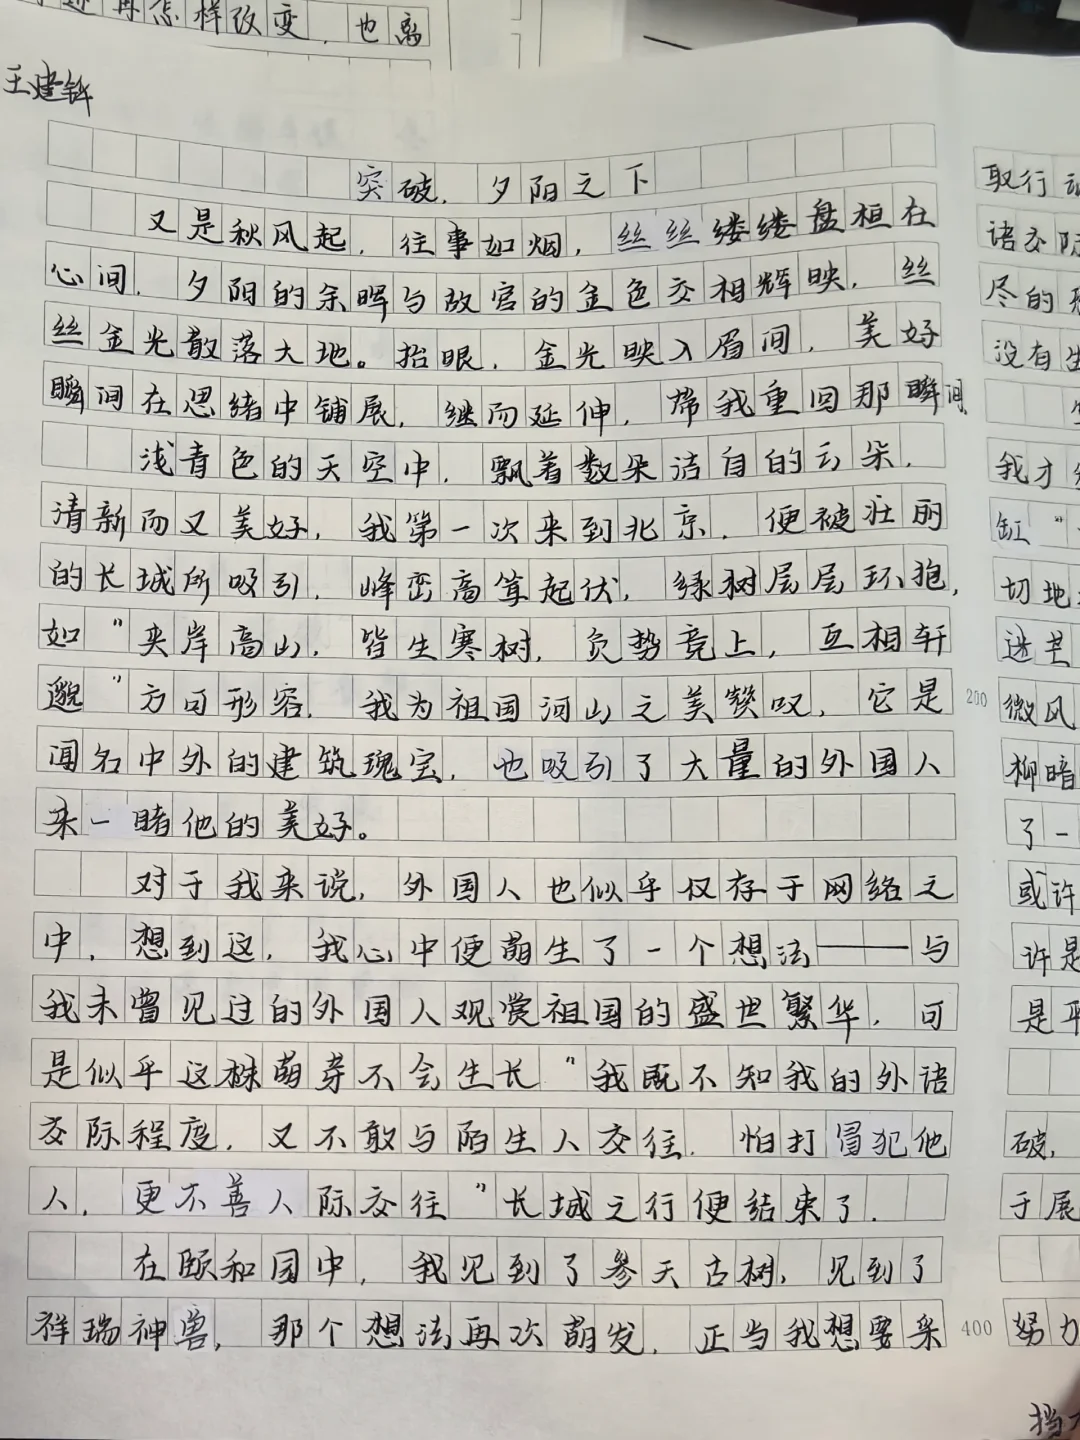 再怎样改变，也离
王建
突破，夕阳之下
又是秋风起，往事如烟，丝丝缕缕盘桓在
心间，夕阳的余晖与故宫的金色交相辉映，丝
丝金光散落大地。抬眼，金光映入眉间，美好
瞬间在思绪中铺展，继而延伸，带我重回那瞬间
浅青色的天空中，飘着数朵洁白的云朵，
清新而又美好，我第一次来到北京，便被壮丽
的长城所吸引，峰峦高耸起伏，绿树层层环抱，
如"夹岸高山，皆生寒树，负势竞上，互相轩
邈"方可形容，我为祖国河山之美赞叹，它是
闻名中外的建筑瑰宝，也吸引了大量的外国人
来一睹他的美好。
对于我来说，外国人也似乎仅存于网络之
中，想到这，我心中便萌生了一个想法——与
我未曾见过的外国人观赏祖国的盛世繁华，可
是似乎这棵萌芽不会生长"我既不知我的外语
交际程度，又不敢与陌生人交往，怕打冒犯他
人，更不善人际交往"长城之行便结束了，
在颐和园中，我见到了参天古树，见到了
祥瑞神兽，那个想法再次萌发，正当我想要采
200
400
取行
语交际
尽的
没有
我才
缸"
切地
迷茫
微风
柳暗
了一
或许
许是
是平
破，
于展
努力
挡